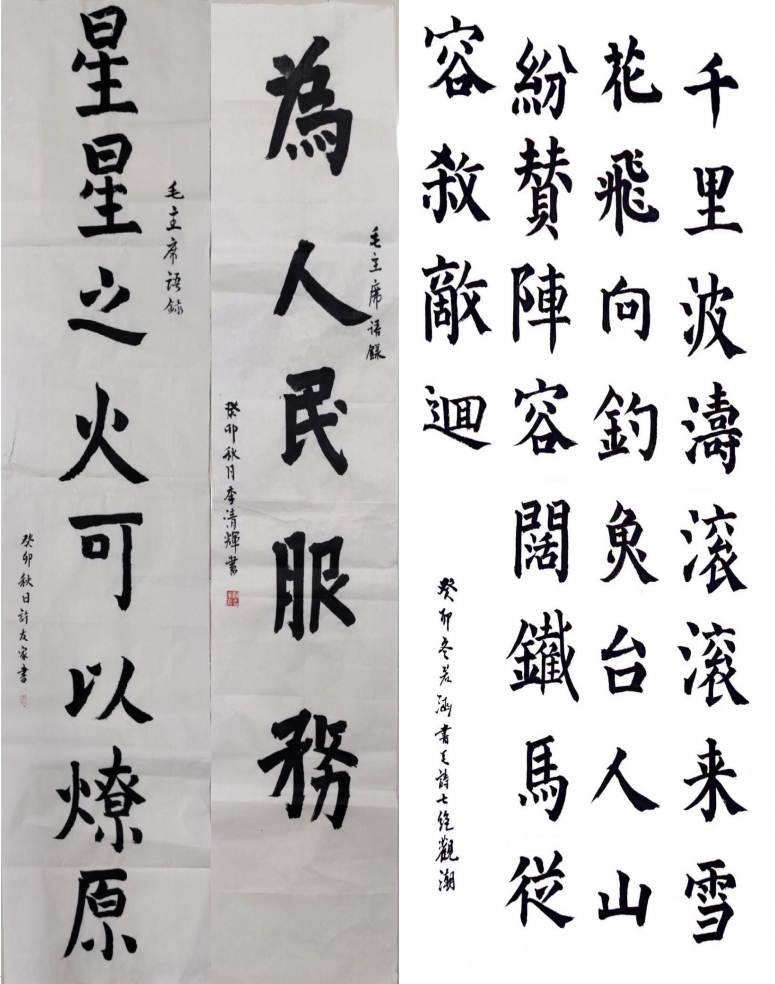 千里波濤滚滚来雪
花飛向釣魚台人山
紛贊陣容闊鐵馬從
容殺敵迴
癸卯冬若涵書毛詩七绝觀潮
毛主席语録
為人民服務
癸卯秋月李清輝書
毛主席語録
星星之火可以燎原
癸卯秋日許友家書